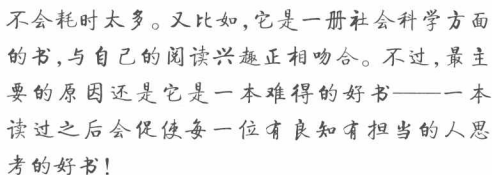 不会耗时太多。又比如,它是一册社会科学方面
的书,与自己的阅读兴趣正相吻合。不过,最主
要的原因还是它是一本难得的好书——一本
读过之后会促使每一位有良知有担当的人思
考的好书!